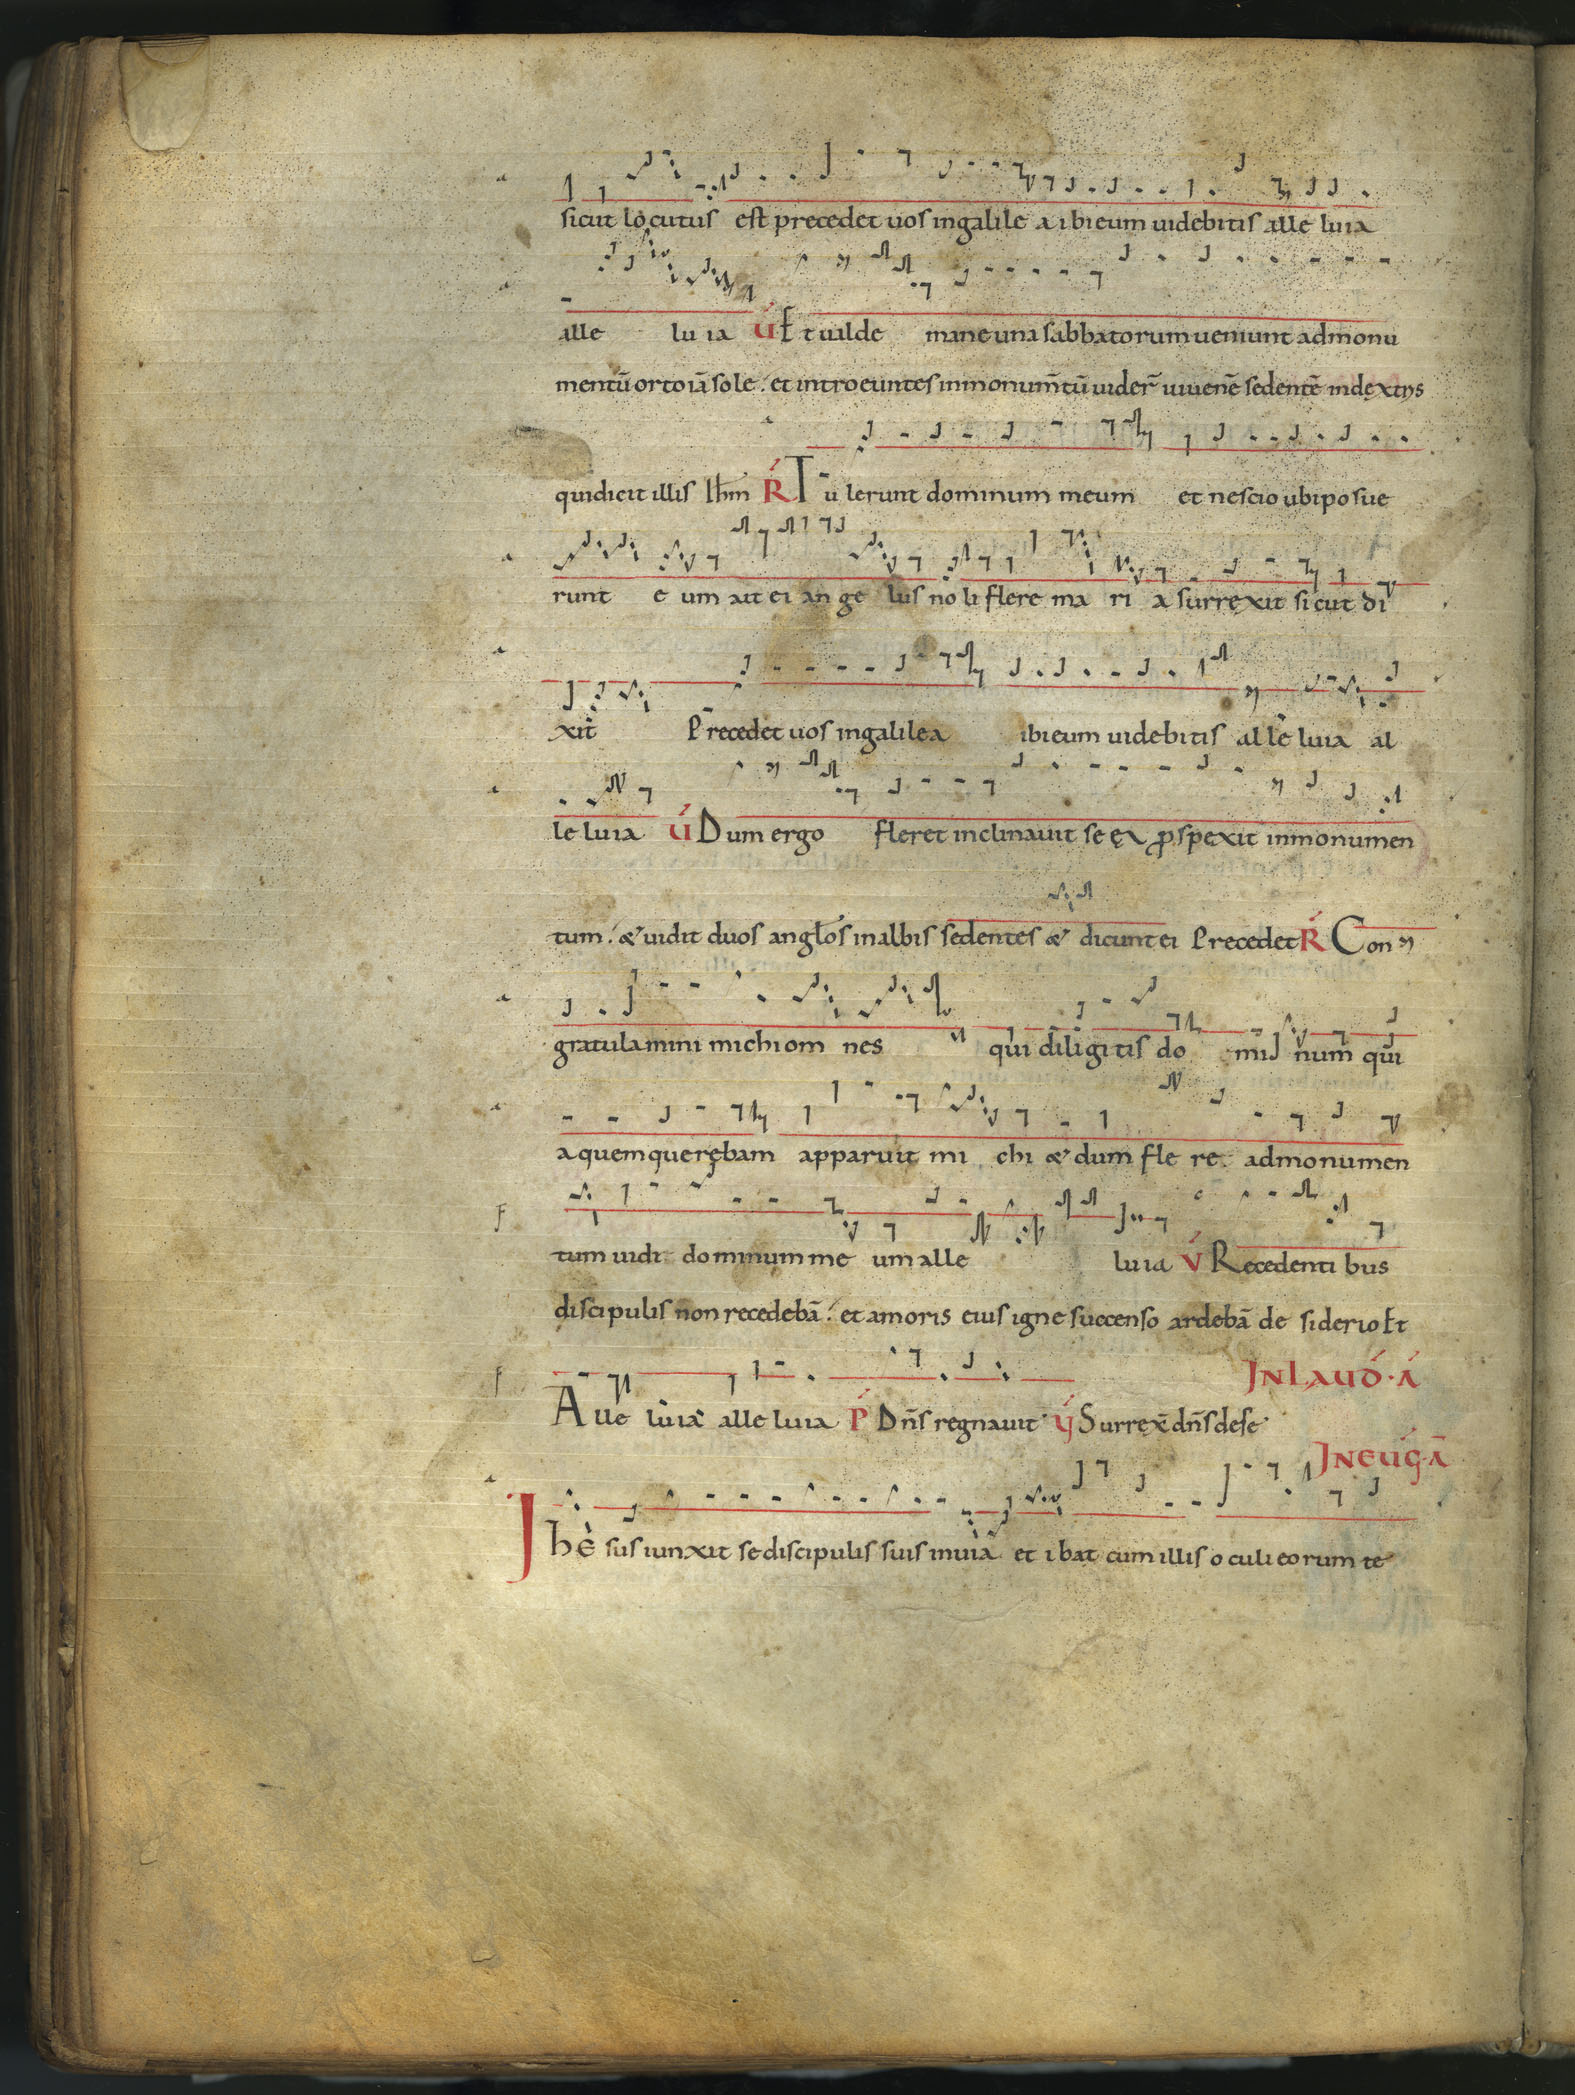 a sicut locutus est precedet uos ingalile a ibi eum uidebitis alle luia
alle lu ia V́ Et ualde mane una sabbatorum ueniunt admonu
mentū orto iā sole. et introeuntes inmonum̄tū uider̄ iuuenē sedentē indęxtris
quidicit illis Ihm̄ Ŕ Tu lerunt dominum meum et nescio ubi posue
a runt e um ait ei an ge lus no li flere ma ri a surrexit sicut di
a xit Precedet uos ingalilea ibi eum uidebitis al le luia al
a le luia V́ Dum ergo fleret inclinauit se & ꝓspexit inmonumen
tum. & uidit duos angl̄os inalbis sedentes & dicunt ei Precedet Ŕ Con
a gratulamini michi om nes qui diligitis do mi num qui
a a quem querębam apparuit mi chi & dum fle re admonumen
F tum uidi dominum me um alle lu ia V́ Recedenti bus
discipulis non recedebā. et amoris eius igne succenso ardebā de siderio Et
INLAUD·A
f Alle luia alle luia P Dn̄s regnauit V́ Surrex̄ dn̄s dese
INEUG·A
a Jhe sus iunxit se discipulis suis inuia et ibat cum illis oculi eorum te